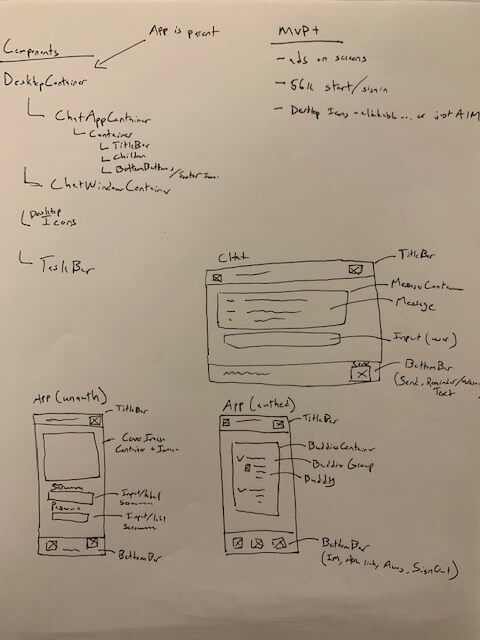 App is parent
Components
DesktopContainer
ChatAppContainer
Container
TitleBar
Children
BottomButtons/Footer
ChatWindowContainer
Desktop
Icons
TaskBar
MVP+
- ads on screens
- 56k start/signin
- Desktop Icons - clickable... or just AIM
Chat
TitleBar
MessageContainer
Message
Input (user)
Send
BottomBar
(Send, Reminder/
Text
App (unauth)
TitleBar
Cover Image
Container + Image
Input/label
Input/label
BottomBar
App (authed)
TitleBar
BuddiesContainer
Buddies Group
Buddy
BottomBar
(IM, link, Away, SignOut)